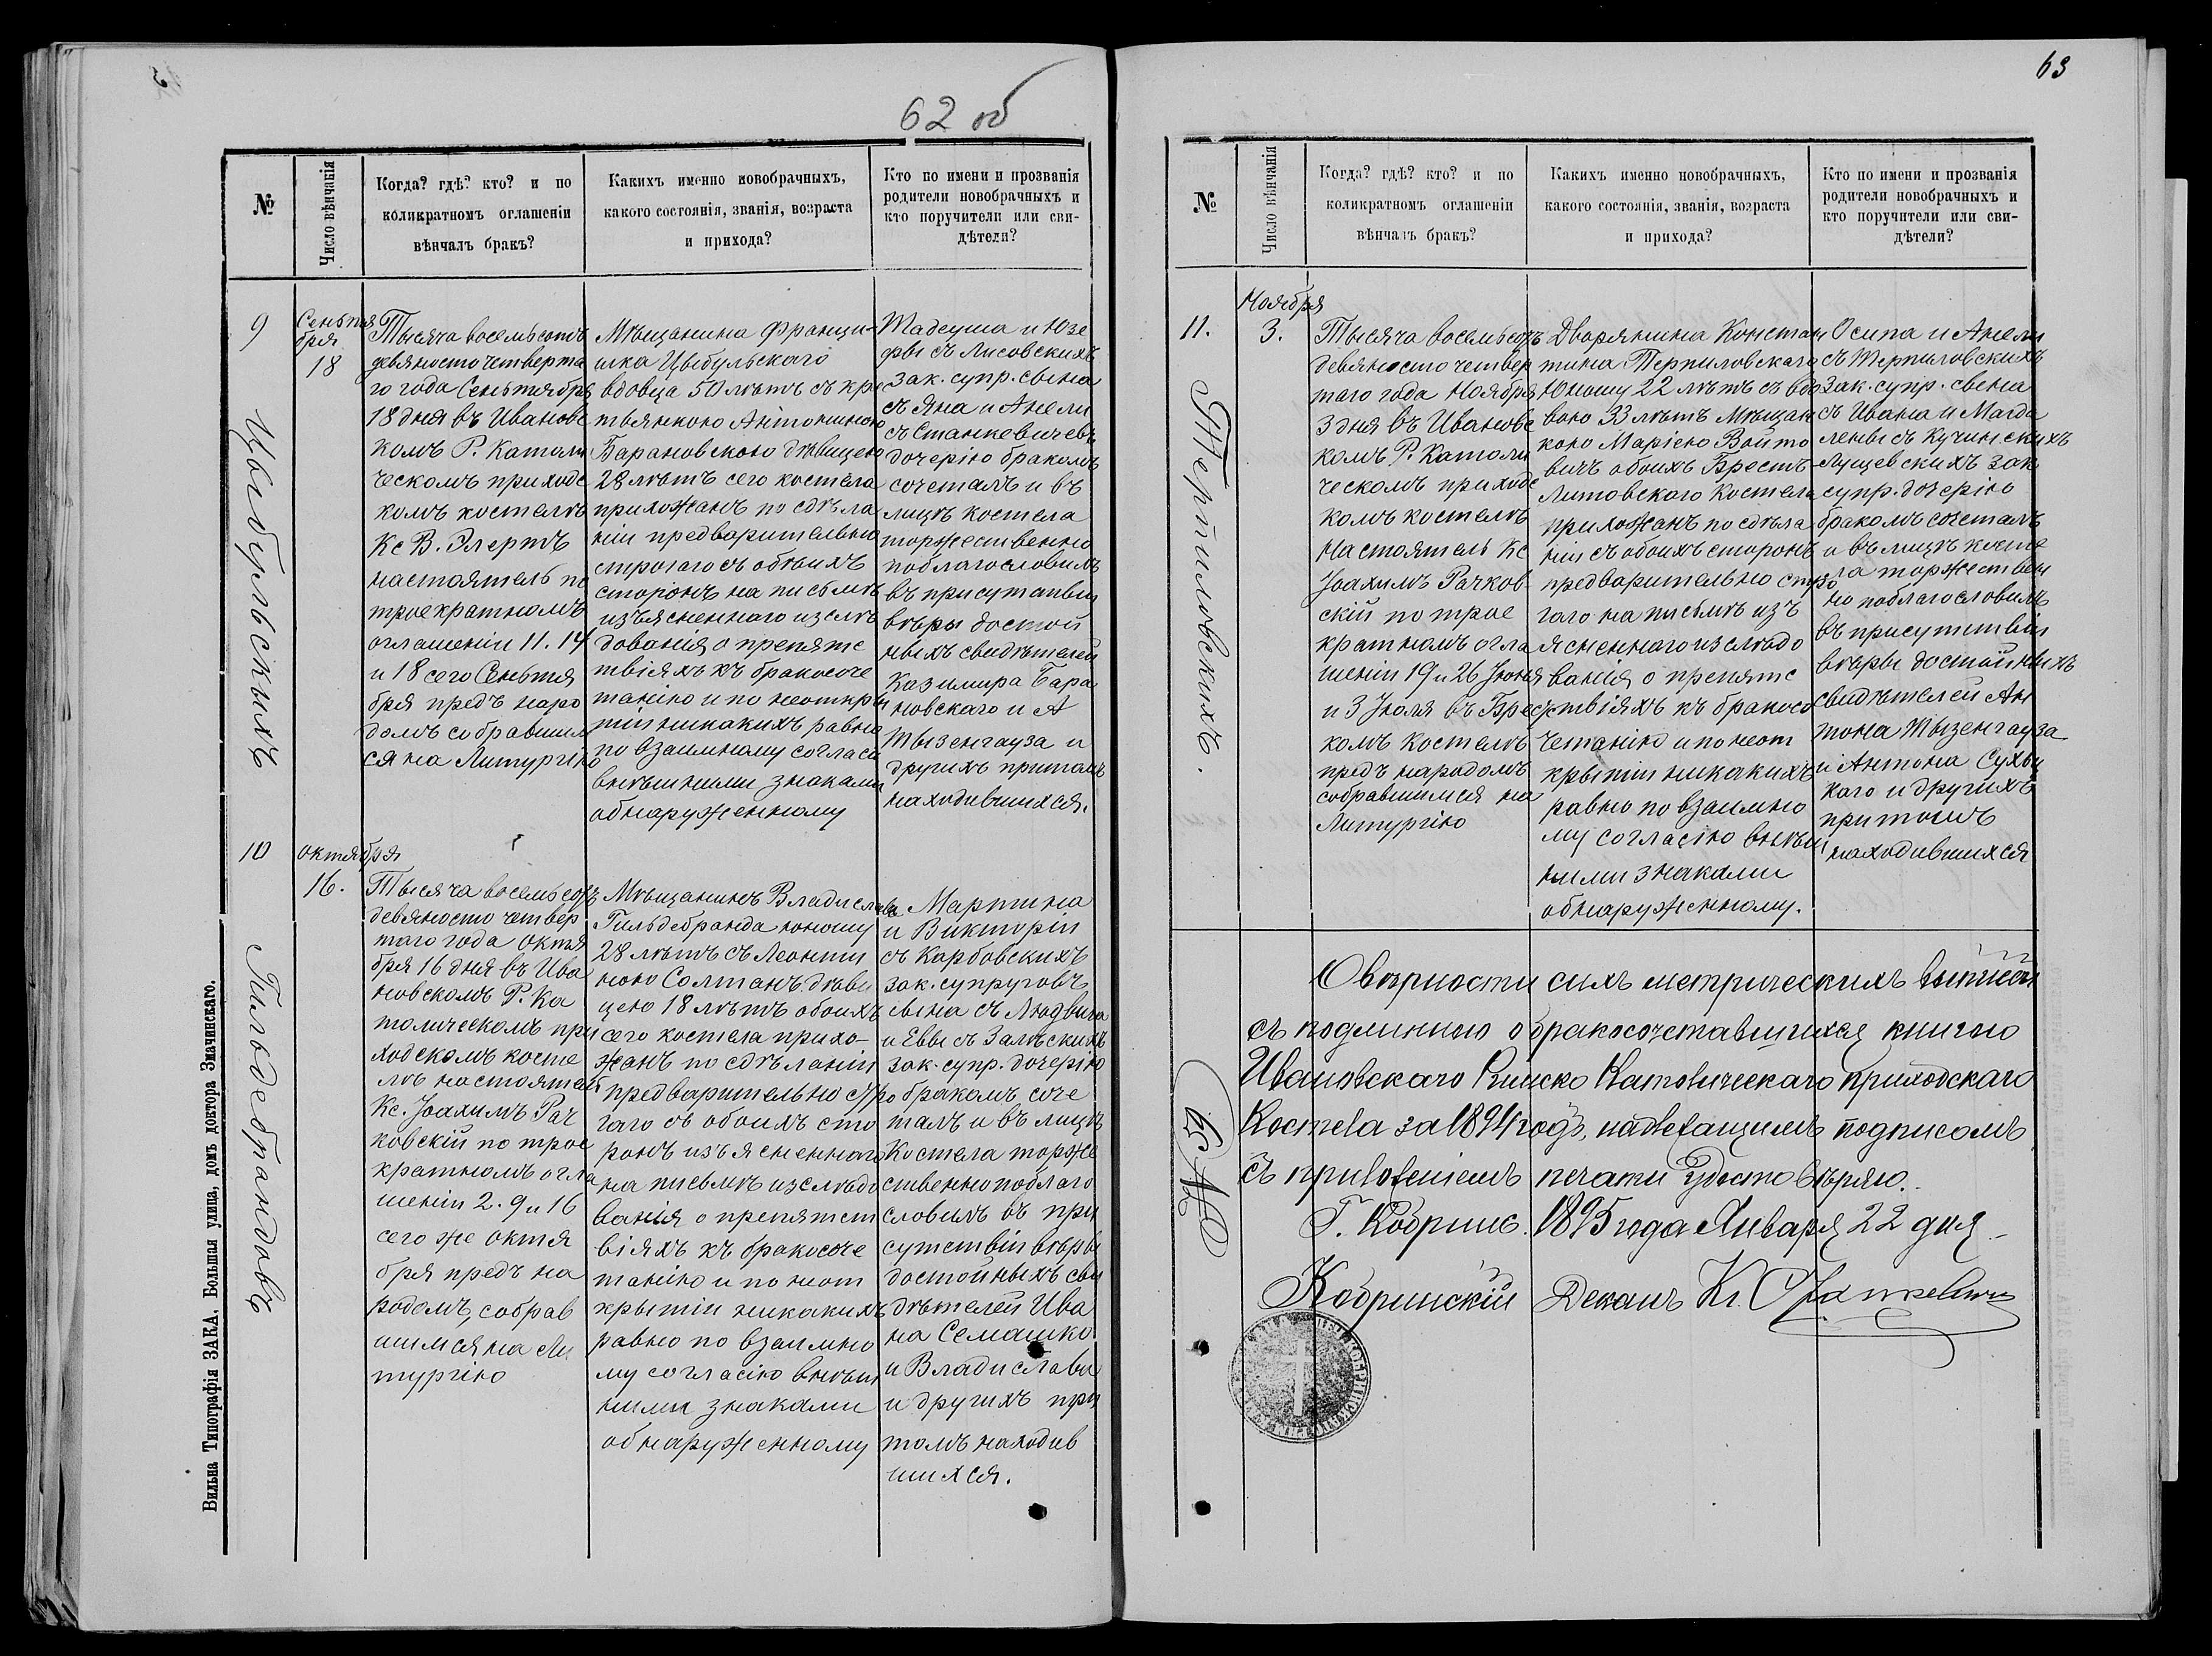 62 об
№
Число вѣнчанія
Когда? гдѣ? кто? и по
коликратномъ оглашеніи
вѣнчалъ бракъ?
Какихъ именно новобрачныхъ,
какого состоянія, званія, возраста
и прихода?
Кто по имени и прозванія
родители новобрачныхъ и
кто поручители или сви-
дѣтели?
9
Цыбульскихъ
Сентя
бря
18
Тысяча восемьсотъ
девяносто четверта
го года Сентября
18 дня въ Ивановс
комъ Р. Католи
ческомъ приходс
комъ костелѣ
Кс В. Элертъ
настоятель по
троекратномъ
оглашеніи 11. 14
и 18 сего Сентя
бря предъ наро
домъ собравшим
ся на Литургію
Мѣщанина Франци-
шка Цыбульскаго
вдовца 50 лѣтъ съ кре
тьянкою Антониною
Барановскою дѣвицею
28 лѣтъ сего костела
прихожанъ по сдѣла
ніи предварительно
строгаго съ обоихъ
сторонъ на письмѣ
изъясненнаго изслѣ
дованія о препятс
твіяхъ къ бракосоче
танію и по неоткры
тіи никакихъ равно
по взаимному согласію
внѣшними знаками
обнаруженному
Тадеуша и Юзе
фы съ Лисовскихъ
зак. супр. сына
съ Яна и Анели
съ Станкевичевъ
дочерію бракомъ
сочеталъ и въ
лицѣ костела
торжественно
поблагословилъ
въ присутствіи
вѣры достой
ныхъ свидѣтелей
Казимира Бара
новскаго и А
Тызенгауза и
другихъ притомъ
находившихся.
10
Гильдебрандовъ
октября
16.
Тысяча восемьсотъ
девяносто четвер
таго года октя
бря 16 дня въ Ива
новскомъ Р. Ка
толическомъ при
ходскомъ косте
лѣ настоятель
Кс. Іоахимъ Рач
ковскій по трое
кратномъ огла
шеніи 2. 9 и 16
сего же октя
бря предъ на
родомъ, собрав
шимся на Ли
тургію
Мѣщанинъ Владислава
Гильдебранда юношу
28 лѣтъ съ Леонти
ною Солтанъ дѣви
цею 18 лѣтъ обоихъ
сего костела прихо-
жанъ по сдѣланіи
предварительно стро
гаго съ обоихъ сто
ронъ изъясненнаго
на письмѣ изслѣдо
ванія о препятст
віяхъ къ бракосоче
танію и по неот
крытіи никакихъ
равно по взаимно
му согласію внѣш
ними знаками
обнаруженному
Мартина
и Викторіи
съ Карбовскихъ
зак. супруговъ
сына съ Людвига
и Еввы съ Залѣскихъ
зак. супр. дочерію
бракомъ соче
талъ и въ лицѣ
Костела торже
ственно поблаго
словилъ въ при
сутствіи вѣры
достойныхъ сви
дѣтелей Ива
на Семашко
и Владислава
и другихъ при
томъ находив
шихся.
Вильна Типографія ЗАКА. Большая улица, домъ доктора Змачинскаго.
63
№
Число вѣнчанія
Когда? гдѣ? кто? и по
коликратномъ оглашеніи
вѣнчалъ бракъ?
Какихъ именно новобрачныхъ,
какого состоянія, званія, возраста
и прихода?
Кто по имени и прозванія
родители новобрачныхъ и
кто поручители или сви-
дѣтели?
11.
Терпиловскихъ.
Ноября
3.
Тысяча восемьсотъ
девяносто четвер
таго года Ноября
3 дня въ Ивановс
комъ Р. Католи
ческомъ приходс
комъ костелѣ
Настоятель Кс
Іоахимъ Рачков
скій по трое
кратномъ огла
шеніи 19 и 26 Іюня
и 3 Іюля въ Брестс
комъ костелѣ
предъ народомъ
собравшимся на
Литургію
Дворянина Констан
тина Терпиловскаго
Юношу 22 лѣтъ съ вдо
вою 33 лѣтъ Мѣщан
кою Маріею Войто
вичъ обоихъ Брестъ-
Литовскаго Костела
прихожанъ по сдѣла
ніи съ обоихъ сторонъ
предварительно стро
гаго на письмѣ изъ
ясненнаго изслѣдо
ванія о препятс
твіяхъ къ бракосо
четанію и по неот
крытіи никакихъ
равно по взаимно
му согласію внѣш
ними знаками
обнаруженному.
Осипа и Анели
съ Терпиловскихъ
Зак. супр. сына
съ Ивана и Магда
лены съ Кучинскихъ
Лущевскихъ зак
супр. дочерію
бракомъ сочеталъ
и въ лицѣ косте
ла торжествен
но поблагословилъ
въ присутствіи
вѣры достойныхъ
свидѣтелей Ан
тона Тызенгауза
и Антона Сухоц
каго и другихъ
притомъ
находившихся
О вѣрности сихъ метрическихъ выписей
съ подлинною о бракосочетавшихся книгою
Ивановскаго Римско Католическаго приходскаго
Костела за 1894 годъ, надлежащимъ подписомъ
съ приложеніемъ печати удостовѣряю.
Г. Кобринъ. 1895 года Января 22 дня
Кобринскій Деканъ Кс.